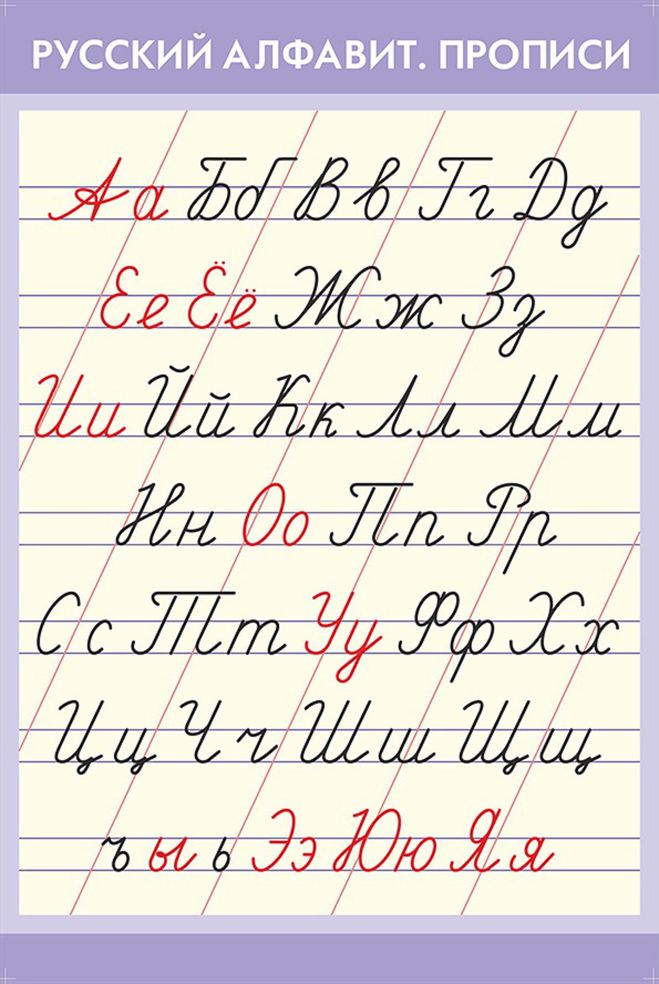 РУССКИЙ АЛФАВИТ. ПРОПИСИ
Аа Бб Вв Гг Дд
Ее Ёё Жж Зз
Ии Йй Кк Лл Мм
Нн Оо Пп Рр
Сс Тт Уу Фф Хх
Цц Чч Шш Щщ
ъ ы ь Ээ Юю Яя